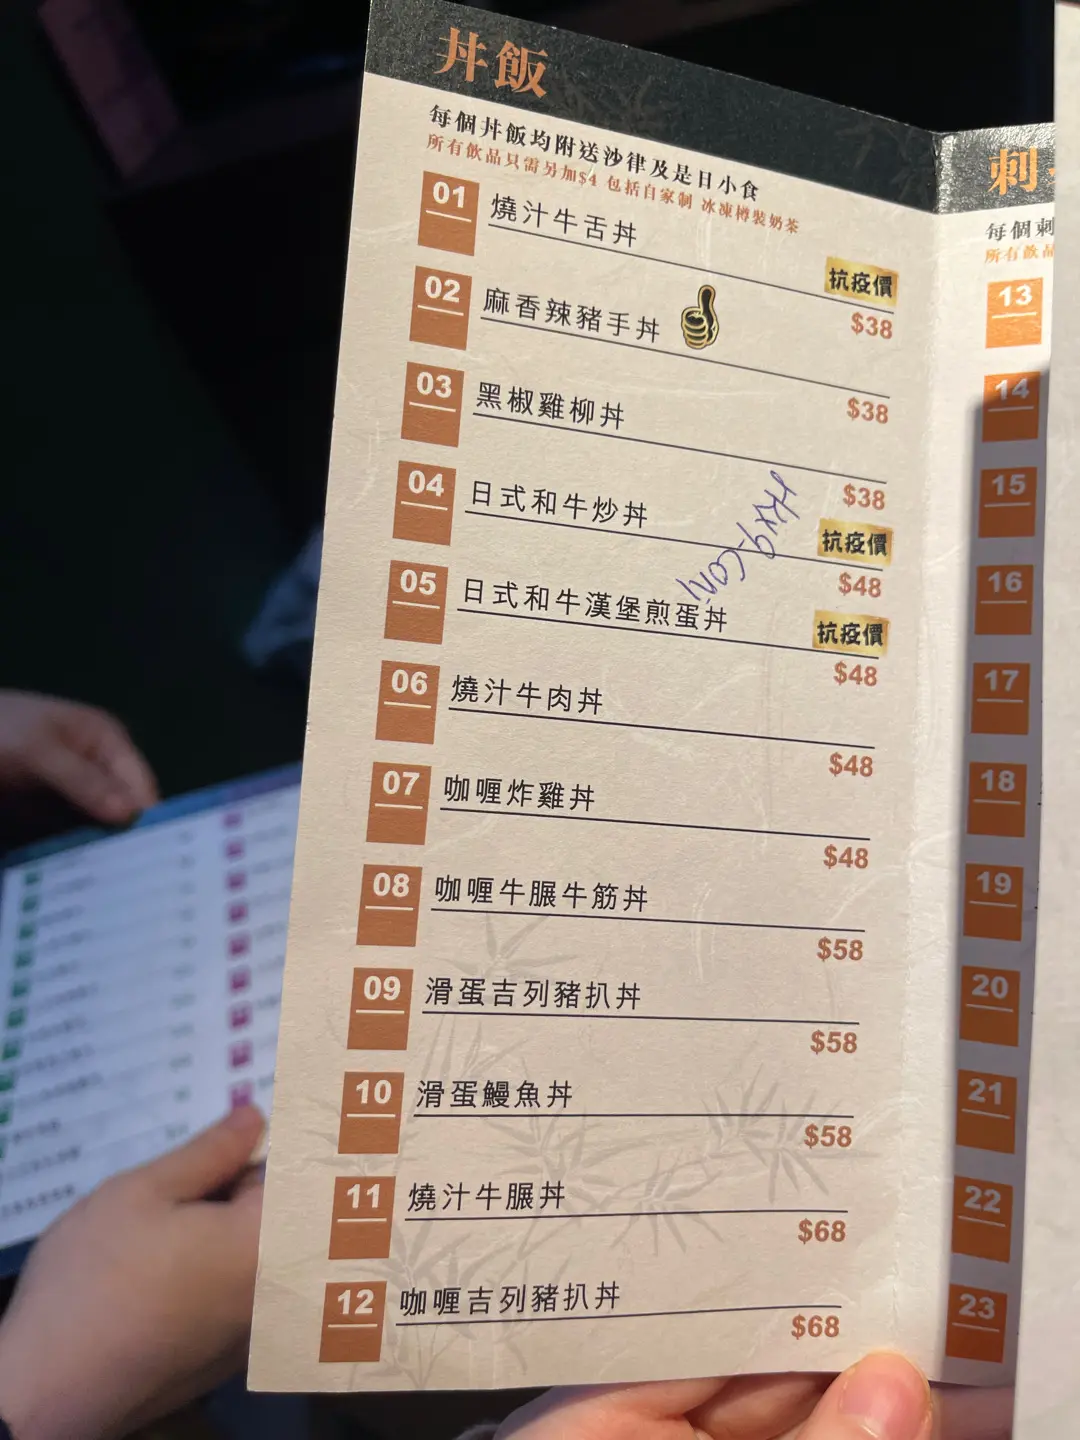 丼飯
每個丼飯均附送沙律及是日小食
所有飲品只需另加$4 包括自家制 冰凍樽裝奶茶
01 燒汁牛舌丼 抗疫價 $38
02 麻香辣豬手丼 $38
03 黑椒雞柳丼 $38
04 日式和牛炒丼 抗疫價 $48
05 日式和牛漢堡煎蛋丼 抗疫價 $48
06 燒汁牛肉丼 $48
07 咖喱炸雞丼 $48
08 咖喱牛𦟌牛筋丼 $58
09 滑蛋吉列豬扒丼 $58
10 滑蛋鰻魚丼 $58
11 燒汁牛𦟌丼 $68
12 咖喱吉列豬扒丼 $68
刺
每個刺
所有飲品
13
14
15
16
17
18
19
20
21
22
23